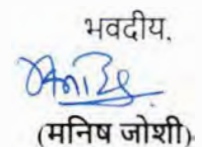 भवदीय,
(मनिष जोशी)